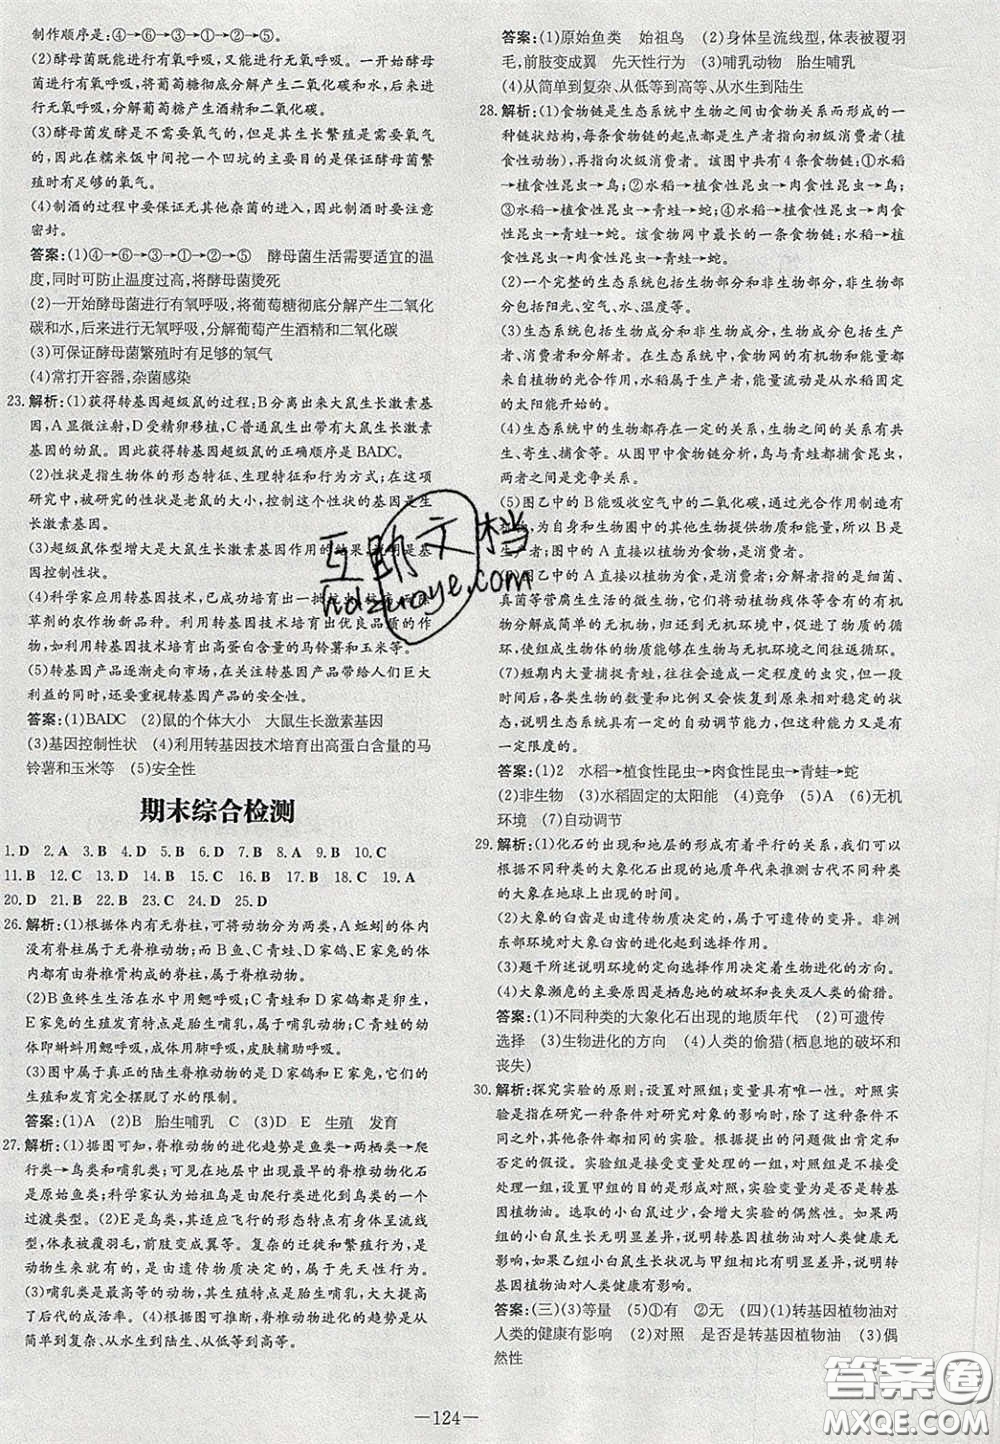 制作顺序是:④→⑥→③→①→②→⑤。
(2)酵母菌既能进行有氧呼吸,又能进行无氧呼吸。一开始酵母
菌进行有氧呼吸,将葡萄糖彻底分解产生二氧化碳和水,后来进行
无氧呼吸,分解葡萄糖产生酒精和二氧化碳。
(3)酵母菌发酵是不需要氧气的,但是其生长繁殖是需要氧气
的,因此在糯米饭中间挖一个凹坑的主要目的是保证酵母菌繁
殖时有足够的氧气。
(4)制酒的过程中要保证无其他杂菌的进入,因此制作时要注意
密封。
答案:(1)④→⑥→③→①→②→⑤ 酵母菌生活需要适宜的温
度,同时可防止温度过高,将酵母菌烫死
(2)一开始酵母菌进行有氧呼吸,将葡萄糖彻底分解产生二氧化
碳和水,后来进行无氧呼吸,分解葡萄产生酒精和二氧化碳
(3)可保证酵母菌繁殖时有足够的氧气
(4)常打开容器,杂菌感染
23. 解析:(1)获得转基因超级鼠的过程:B分离出来大鼠生长激素基
因,A显微注射,D受精卵移植,C普通鼠生出带有大鼠生长激素
基因的幼鼠。因此获得转基因超级鼠的正确顺序是BADC。
(2)性状是指生物体的形态特征、生理特征和行为方式;在这项
研究中,被研究的性状是老鼠的大小,控制这个性状的基因是生
长激素基因。
(3)超级鼠体型增大是大鼠生长激素基因作用的结果,说明是基
因控制性状。
(4)科学家应用转基因技术,已成功培育出一批抗虫、抗病、抗除
草剂的农作物新品种。利用转基因技术培育出优良品质的作
物,如利用转基因技术培育出高蛋白含量的马铃薯和玉米等。
(5)转基因产品逐渐走向市场,在关注转基因产品带给人类巨大
利益的同时,还要重视转基因产品的安全性。
答案:(1)BADC (2)鼠的个体大小 大鼠生长激素基因
(3)基因控制性状 (4)利用转基因技术培育出高蛋白含量的马
铃薯和玉米等 (5)安全性
期末综合检测
1. D 2. A 3. B 4. D 5. B 6. D 7. B 8. A 9. B 10. C
11. B 12. C 13. C 14. B 15. D 16. B 17. B 18. C 19. A
20. D 21. B 22. B 23. C 24. D 25. D
26. 解析:(1)根据体内有无脊柱,可将动物分为两类,A蚯蚓的体内
没有脊柱属于无脊椎动物;而B鱼、C青蛙、D家鸽、E家兔的体
内都有由脊椎骨构成的脊柱,属于脊椎动物。
(2)B鱼终生生活在水中用鳃呼吸;C青蛙和D家鸽都是卵生,
E家兔的生殖发育特点是胎生哺乳,属于哺乳动物;C青蛙的幼
体即蝌蚪用鳃呼吸,成体用肺呼吸,皮肤辅助呼吸。
(3)图中属于真正的陆生脊椎动物的是D家鸽和E家兔,它们
的生殖和发育完全摆脱了水的限制。
答案:(1)A (2)B 胎生哺乳 C (3)D E 生殖 发育
27. 解析:(1)据图可知,脊椎动物的进化趋势是鱼类→两栖类→爬
行类→鸟类和哺乳类;可见在地层中出现最早的脊椎动物化石
是原始鱼类;科学家认为始祖鸟是由爬行类进化到鸟类的一个
过渡类型。(2)E是鸟类,其适应飞行的形态特点有身体呈流线
型,体表被覆羽毛,前肢变成翼等。复杂的迁徙和繁殖行为,是
动物生来就有的,由遗传物质决定的行为,属于先天性行为。
(3)哺乳类是最高等的动物,其生殖特点是胎生哺乳,大大提高
了后代的成活率。(4)根据图可推断,脊椎动物进化的趋势是从
简单到复杂、从水生到陆生、从低等到高等。
答案:(1)原始鱼类 始祖鸟 (2)身体呈流线型,体表被覆羽
毛,前肢变成翼 先天性行为 (3)哺乳动物 胎生哺乳
(4)从简单到复杂、从低等到高等、从水生到陆生
28. 解析:(1)食物链是生态系统中生物之间由食物关系而形成的一
种链状结构,每条食物链的起点都是生产者指向初级消费者(植
食性动物),再指向次级消费者。该图中共有4条食物链:①水稻
→植食性昆虫→鸟;②水稻→植食性昆虫→肉食性昆虫→鸟;
③水稻→植食性昆虫→青蛙→蛇;④水稻→植食性昆虫→肉食
性昆虫→青蛙→蛇。该食物网中最长的一条食物链:水稻→植
食性昆虫→肉食性昆虫→青蛙→蛇。
(2)一个完整的生态系统包括生物部分和非生物部分,非生物部
分包括阳光、空气、水、温度等。
(3)生态系统包括生物成分和非生物成分,生物成分包括生产
者、消费者和分解者。在生态系统中,食物网的有机物和能量都
来自植物的光合作用,水稻属于生产者,能量流动是从水稻固定
的太阳能开始的。
(4)生态系统中的生物都存在一定的关系,生物之间的关系有共
生、寄生、捕食等。从图甲中食物链分析,鸟与青蛙都捕食昆虫,
两者之间是竞争关系。
(5)图乙中的B能吸收空气中的二氧化碳,通过光合作用制造有
机物,为自身和生物圈中的其他生物提供物质和能量,所以B是
生产者;图中的A直接以植物为食物,是消费者。
(6)图乙中的A直接以植物为食,是消费者;分解者指的是细菌、
真菌等营腐生生活的微生物,它们将动植物残体等含有的有机
物分解成简单的无机物,归还到无机环境中,促进了物质的循
环,使组成生物体的物质能够在生物与无机环境之间往返循环。
(7)短时间内大规模捕捉青蛙,可造成一定程度的虫灾,经过一
段时间后,各类生物的数量和比例又会恢复到原来相对稳定的状
态,说明生态系统具有一定的自动调节能力,但这种能力又是有
一定限度的。
答案:(1)2 水稻→植食性昆虫→肉食性昆虫→青蛙→蛇
(2)非生物 (3)水稻固定的太阳能 (4)竞争 (5)A (6)无机
环境 (7)自动调节
29. 解析:(1)化石的出现和地层的形成有着平行的关系,我们可以
根据不同种类的大象化石出现的地质年代来推测古代不同种类
的大象在地球上出现的时间。
(2)大象的臼齿是由遗传物质决定的,属于可遗传的变异。非洲
东部环境对大象臼齿的进化起到选择作用。
(3)题干所述说明环境的定向选择决定着生物进化的方向。
(4)大象濒危的主要原因是栖息地的破坏和丧失及人类的偷猎。
答案:(1)不同种类的大象化石出现的地质年代 (2)可遗传
选择 (3)生物进化的方向 (4)人类的偷猎(栖息地的破坏和
丧失)
30. 解析:探究实验的原则:设置对照组;变量具有唯一性。对照实
验是指在研究一种条件对研究对象的影响时,除了这种条件不
同之外,其他条件都相同的实验。根据提出的问题做出肯定和
否定的假设。实验组是接受变量处理的一组,对照组是不接受
处理的一组,设置甲组的目的是对照,实验变量为是否是转基
因植物油。选取的小白鼠过少,会增大实验的偶然性。如果两
组小白鼠生长无明显差异,则说明转基因植物油对人类健康无影
响,如果乙组小白鼠生长状况与甲组小白鼠有明显差异,则转
基因植物油对人类健康有影响。
答案:(三)(3)等量 (5)①有 ②无 (四)(1)转基因植物油对
人类的健康有影响 (2)对照 是否是转基因植物油 (3)偶
然性
—124—
互助文档
hdzuoye.com
答案圈
MXQE.COM